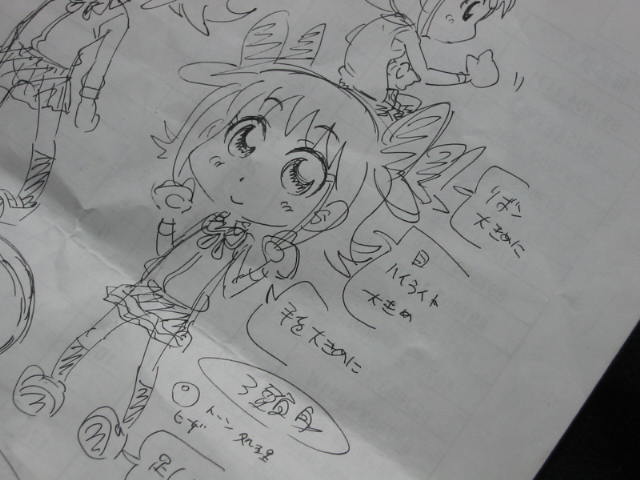 リボン
大きめに
目
ハイライト
大きめ
手を大きめに
3頭身
ヒザ
トーン処理
足